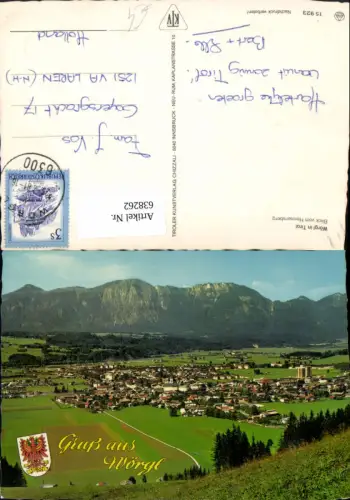 15 929
Nachdruck verboten!
Hartelijke groeten
vanuit zonnig Tirol.
Bart + Lilo.
Wörgl in Tirol
Blick vom Hennersberg
TIROLER KUNSTVERLAG CHIZZALI · 6040 INNSBRUCK · NEU-RUM, KAPLANSTRASSE 12
Fam. J. Vos
Gooyersgracht 17
1251 VA LAREN (N-H)
Holland
Artikel Nr.
638262
6300
REPUBLIK ÖSTERREICH
3 S
Gruß aus
Wörgl